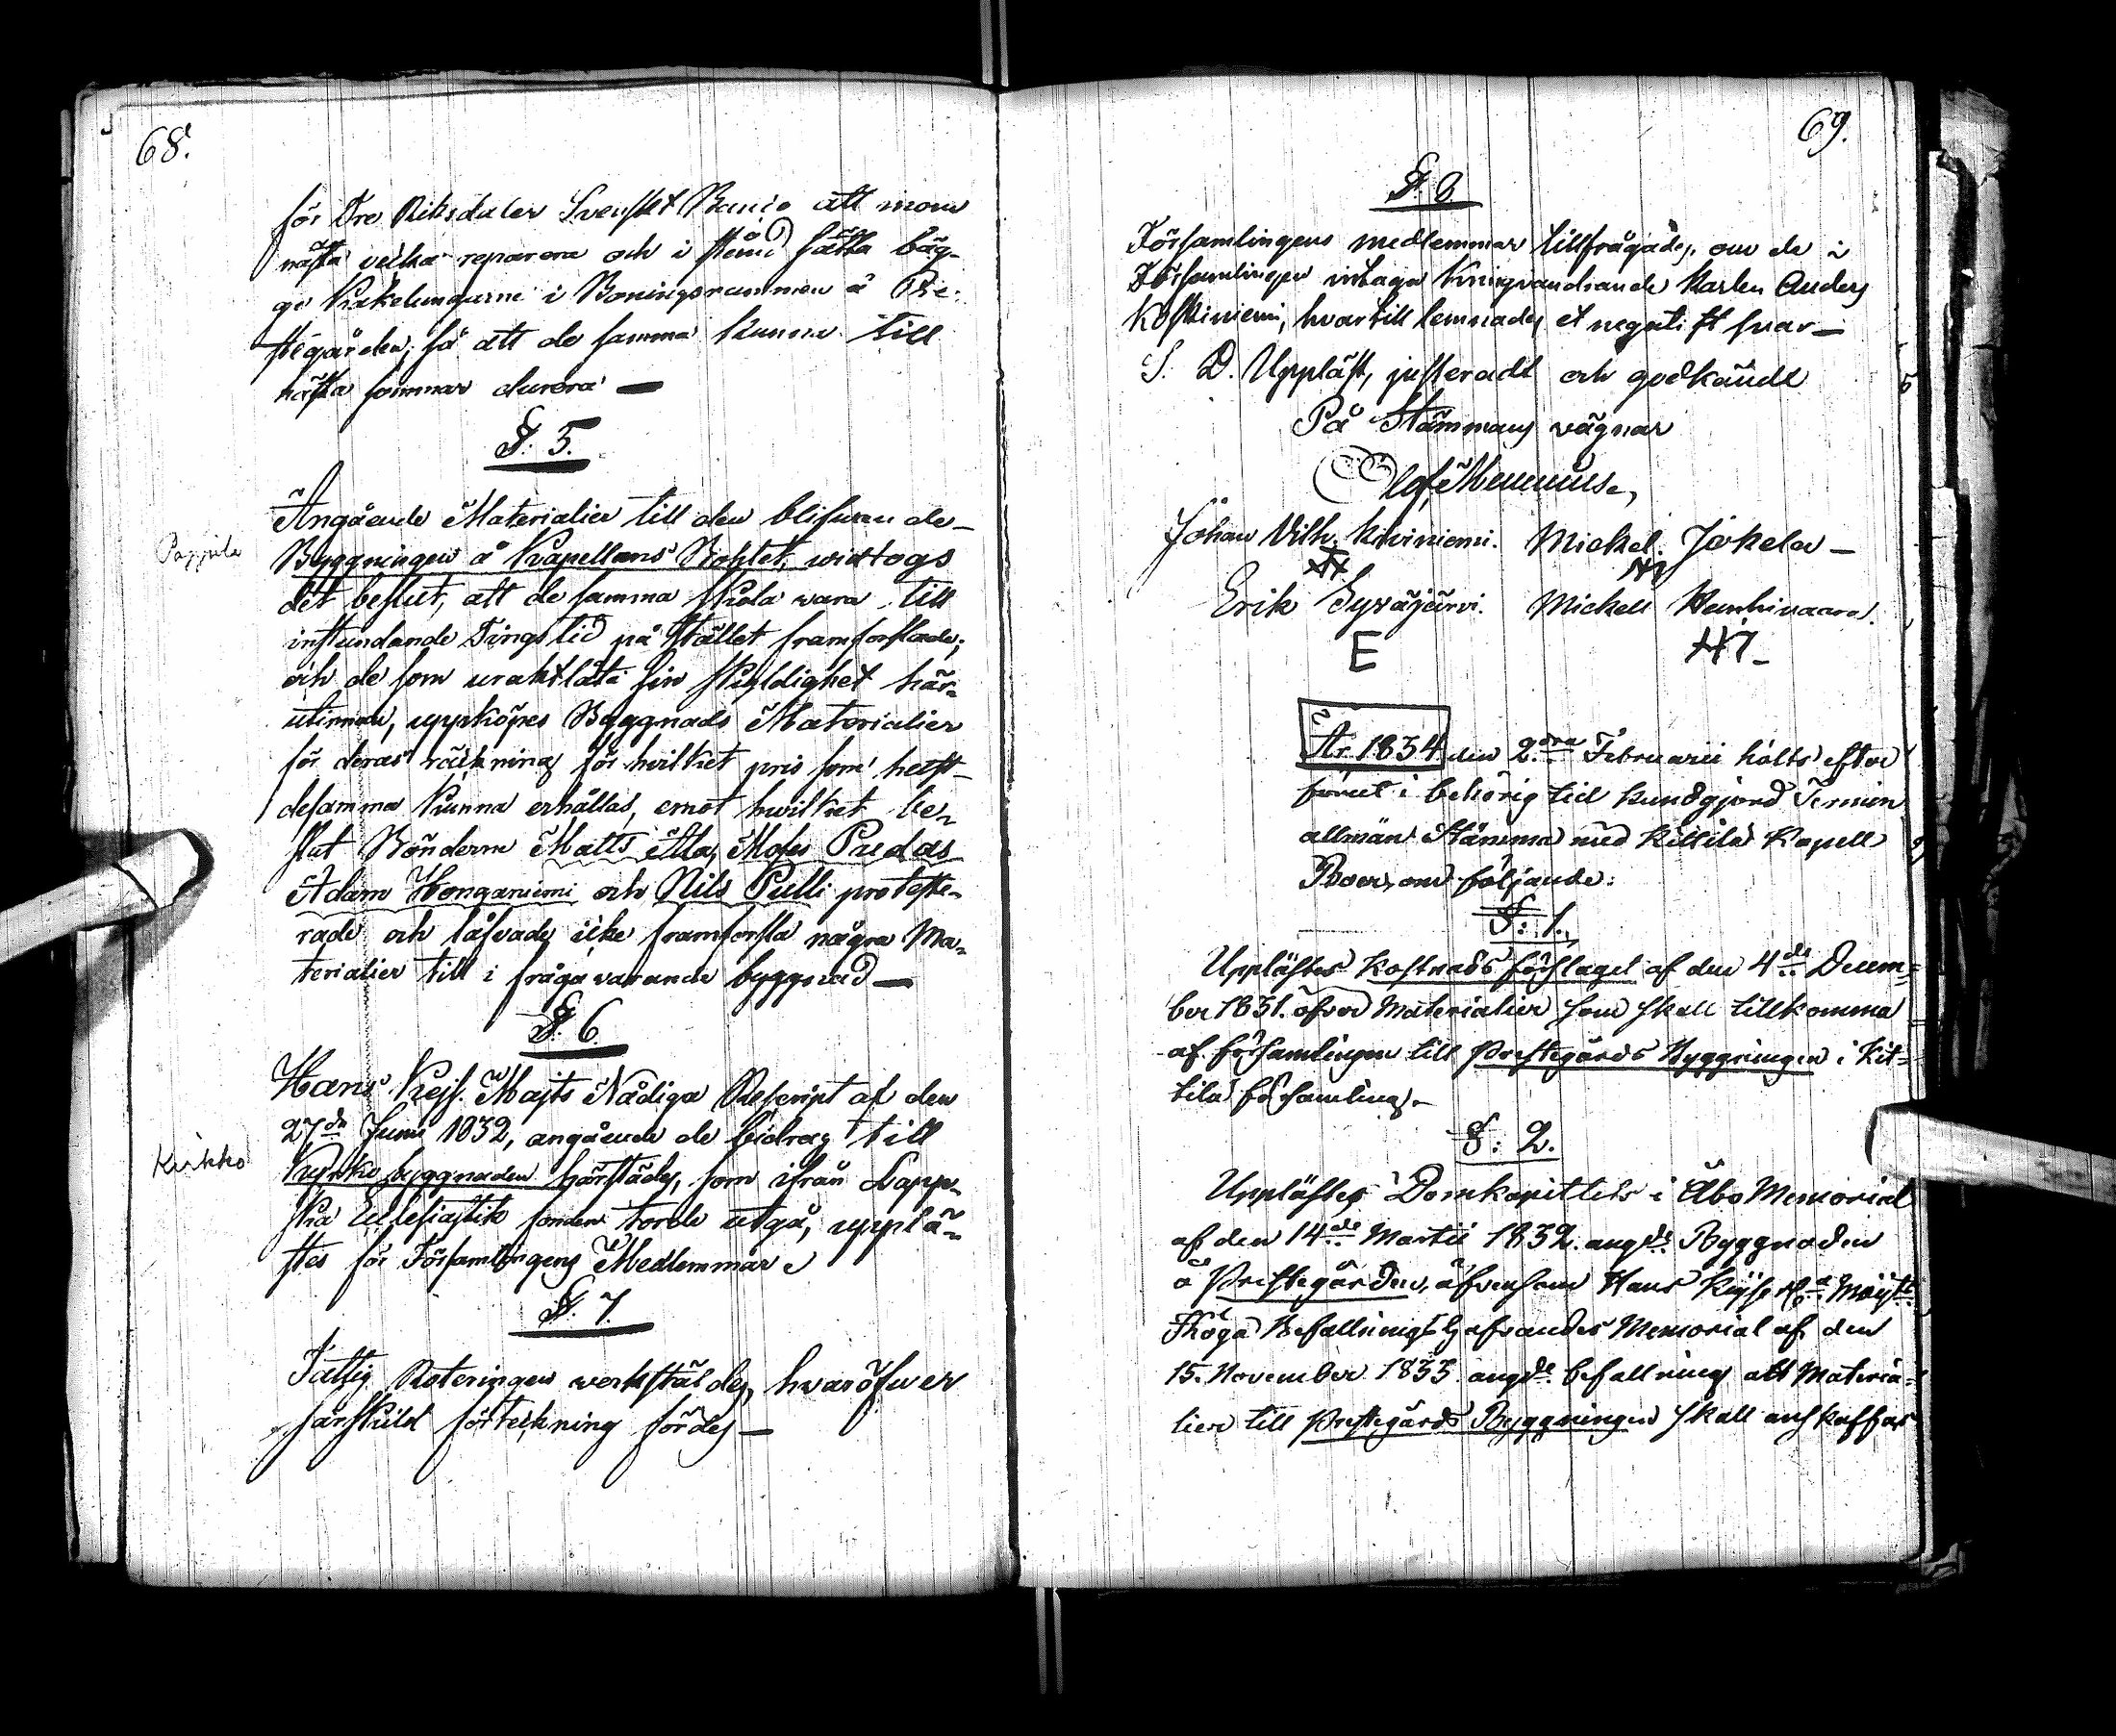 68.
för Tre Riksdaler Svenskt Banco att inom
nästa vecka reparera och i stånd sätta bäg-
ge Kakelungarne i Boningsrummen å Pre-
stegården, så att de samma kunna till
nästa sommar durera —
§: 5.
Angående Materialier till den blifwande
Pappila
Byggningen å Kapellans Bohlet, widtogs
det beslut, att de samma skola wara till
instundande Tingstid på stället framforslade;
och de som uraktlåta sin skyldighet här-
utinnan, uppköpes Byggnads Materialier
för deras räkning för hvilket pris som helst
desamma kunna erhållas, emot hwilket be-
slut Bönderne Matts Alla, Moses
Adam Honganiemi och Nils Pulli proteste-
rade och låfvade icke framforsla några Ma-
terialier till i fråga warande byggnad —
§: 6
Hans Kejs. Majts Nådiga Rescript af den
27de Junii 1832, angående de bidrag till
Kirkko
Kyrko byggnaden härstädes, som ifrån Lapp-
ska Ecclesiastik fonden torde utgå, upplä-
stes för Församlingens Medlemmar
§: 7.
Fattig Roteringen verkstäldes, hvaröfver
särskild förteckning fördes —
69.
§: 8
Församlingens medlemmar tillfrågades, om de i
Församlingen intaga kringvandrande Karlen Anders
Koskiniemi, hvartill lemnades et negatift svar —
S. D. Uppläst, justeradt och godkändt
På Stämmans vägnar
Olof
Johan Vilh. Kiviniemi. Mickel Jokela —
Erik Syväjärvi. Mickell
E
År 1834 den 2dra Februarii hölts efter
förut i behörig tid kundgjord Termin
allmän Stämma med Kittilä Kapell
Boer, om följande:
§: 1.
Upplästes Kostnads förslaget af den 4de Decem-
ber 1831. öfver Materialier som skall tillkomma
af församlingen till Prestegårds Byggningen i Kit-
tilä församling.
§: 2.
Upplästes Domkapitlets i Åbo Memorial
af den 14de Martii 1832. angde Byggnaden
å Prestegården, äfvensom Hans Keyserl. Majts
Höga Befallningshafvandes Memorial af den
15. November 1833. angde befallning att Materia-
lier till Prestegårds Byggningen skall anskaffas